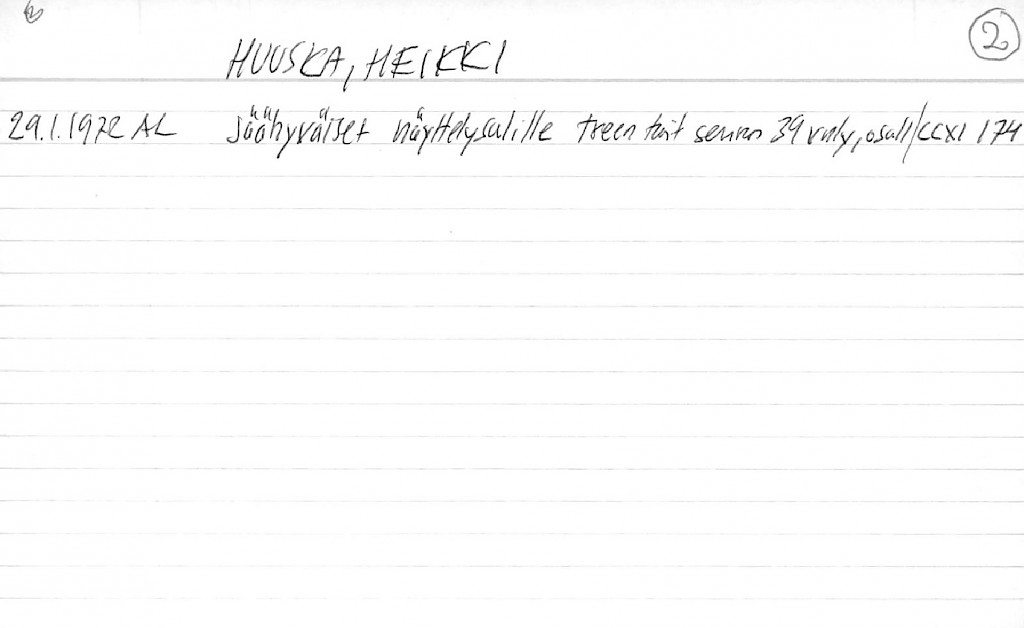 2
HUUSKA, HEIKKI
29.1.1972 AL jäähyväiset näyttelysalille treen tait seuran 39 vnly, osall/CCXI 174